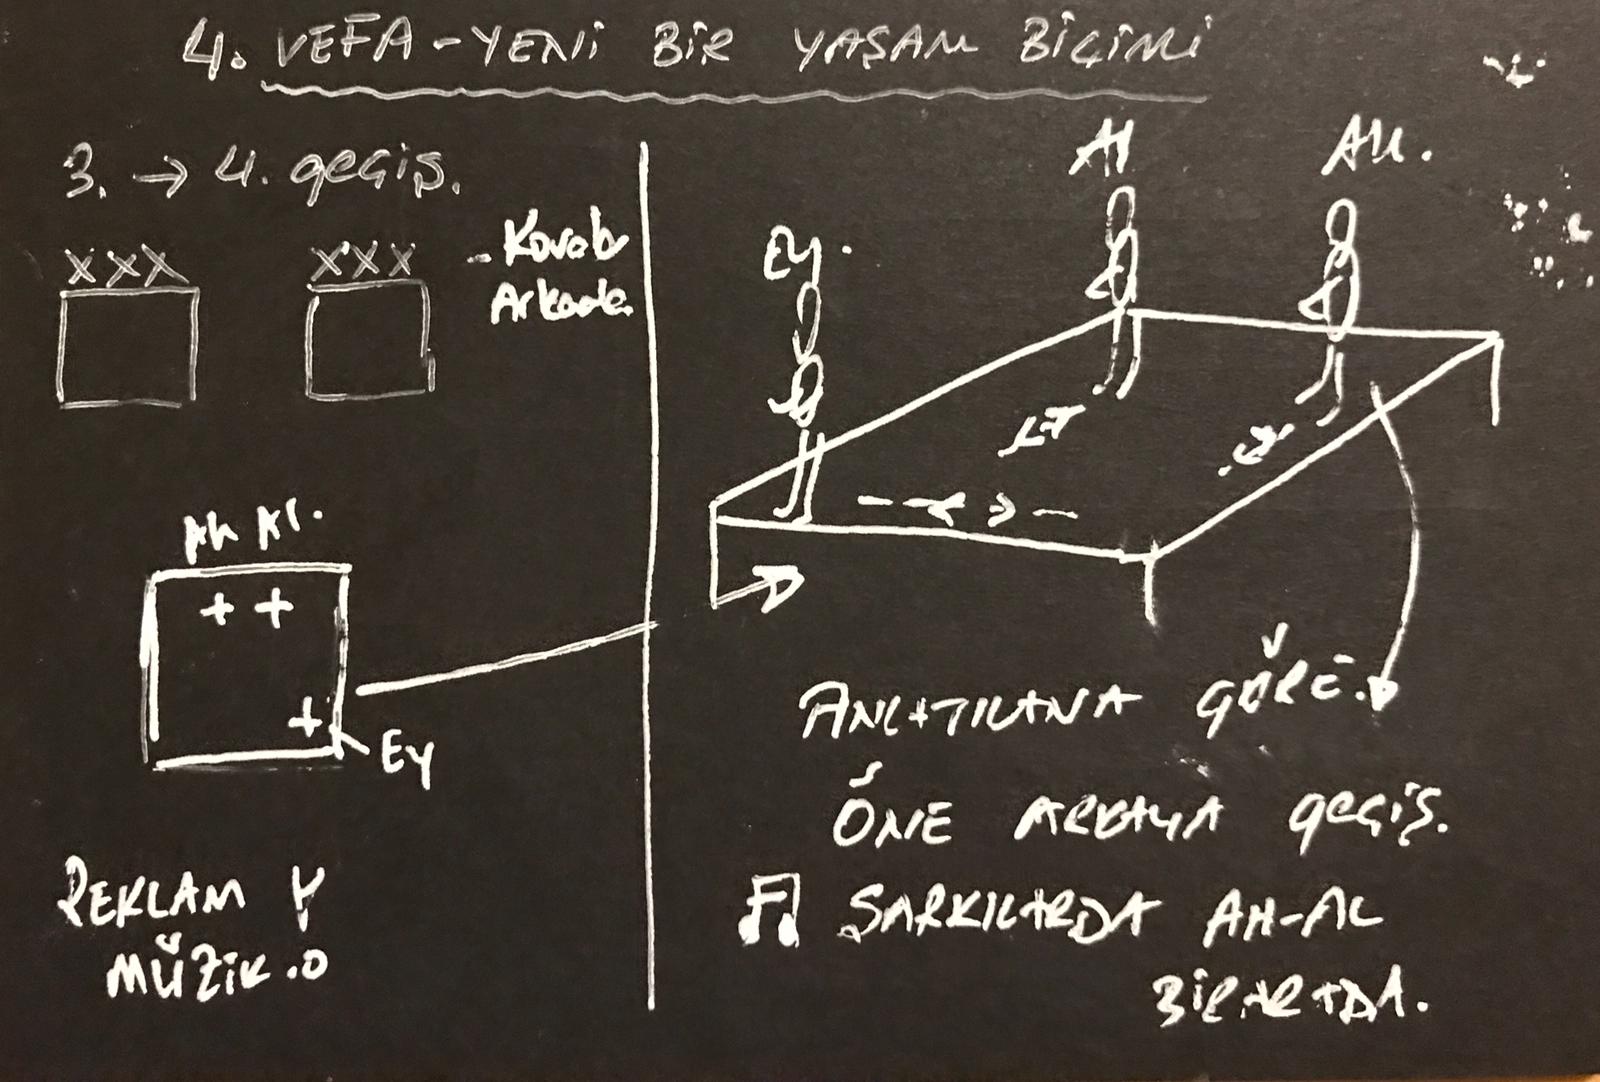 4. VEFA-YENİ BİR YAŞAM BİÇİMİ
3. → 4. geçiş.
XXX XXX
Ah Al.
+ +
+
Ey
REKLAM
MÜZİK
Ey.
Al
AH.
ANLATILANA GÖRE.
ÖNE ARKAYA geçiş.
ŞARKILARDA AH-AL
BİRARADA.